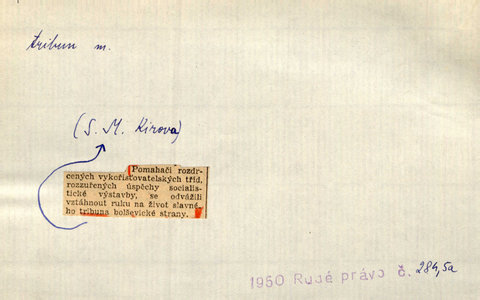 tribun m.
(S. M. Kirova)
Pomahači rozdr-
cených vykořisťovatelských tříd,
rozzuřených úspěchy socialis-
tické výstavby, se odvážili
vztáhnout ruku na život slavné-
ho tribuna bolševické strany.
1950 Rudé právo č. 284,5a